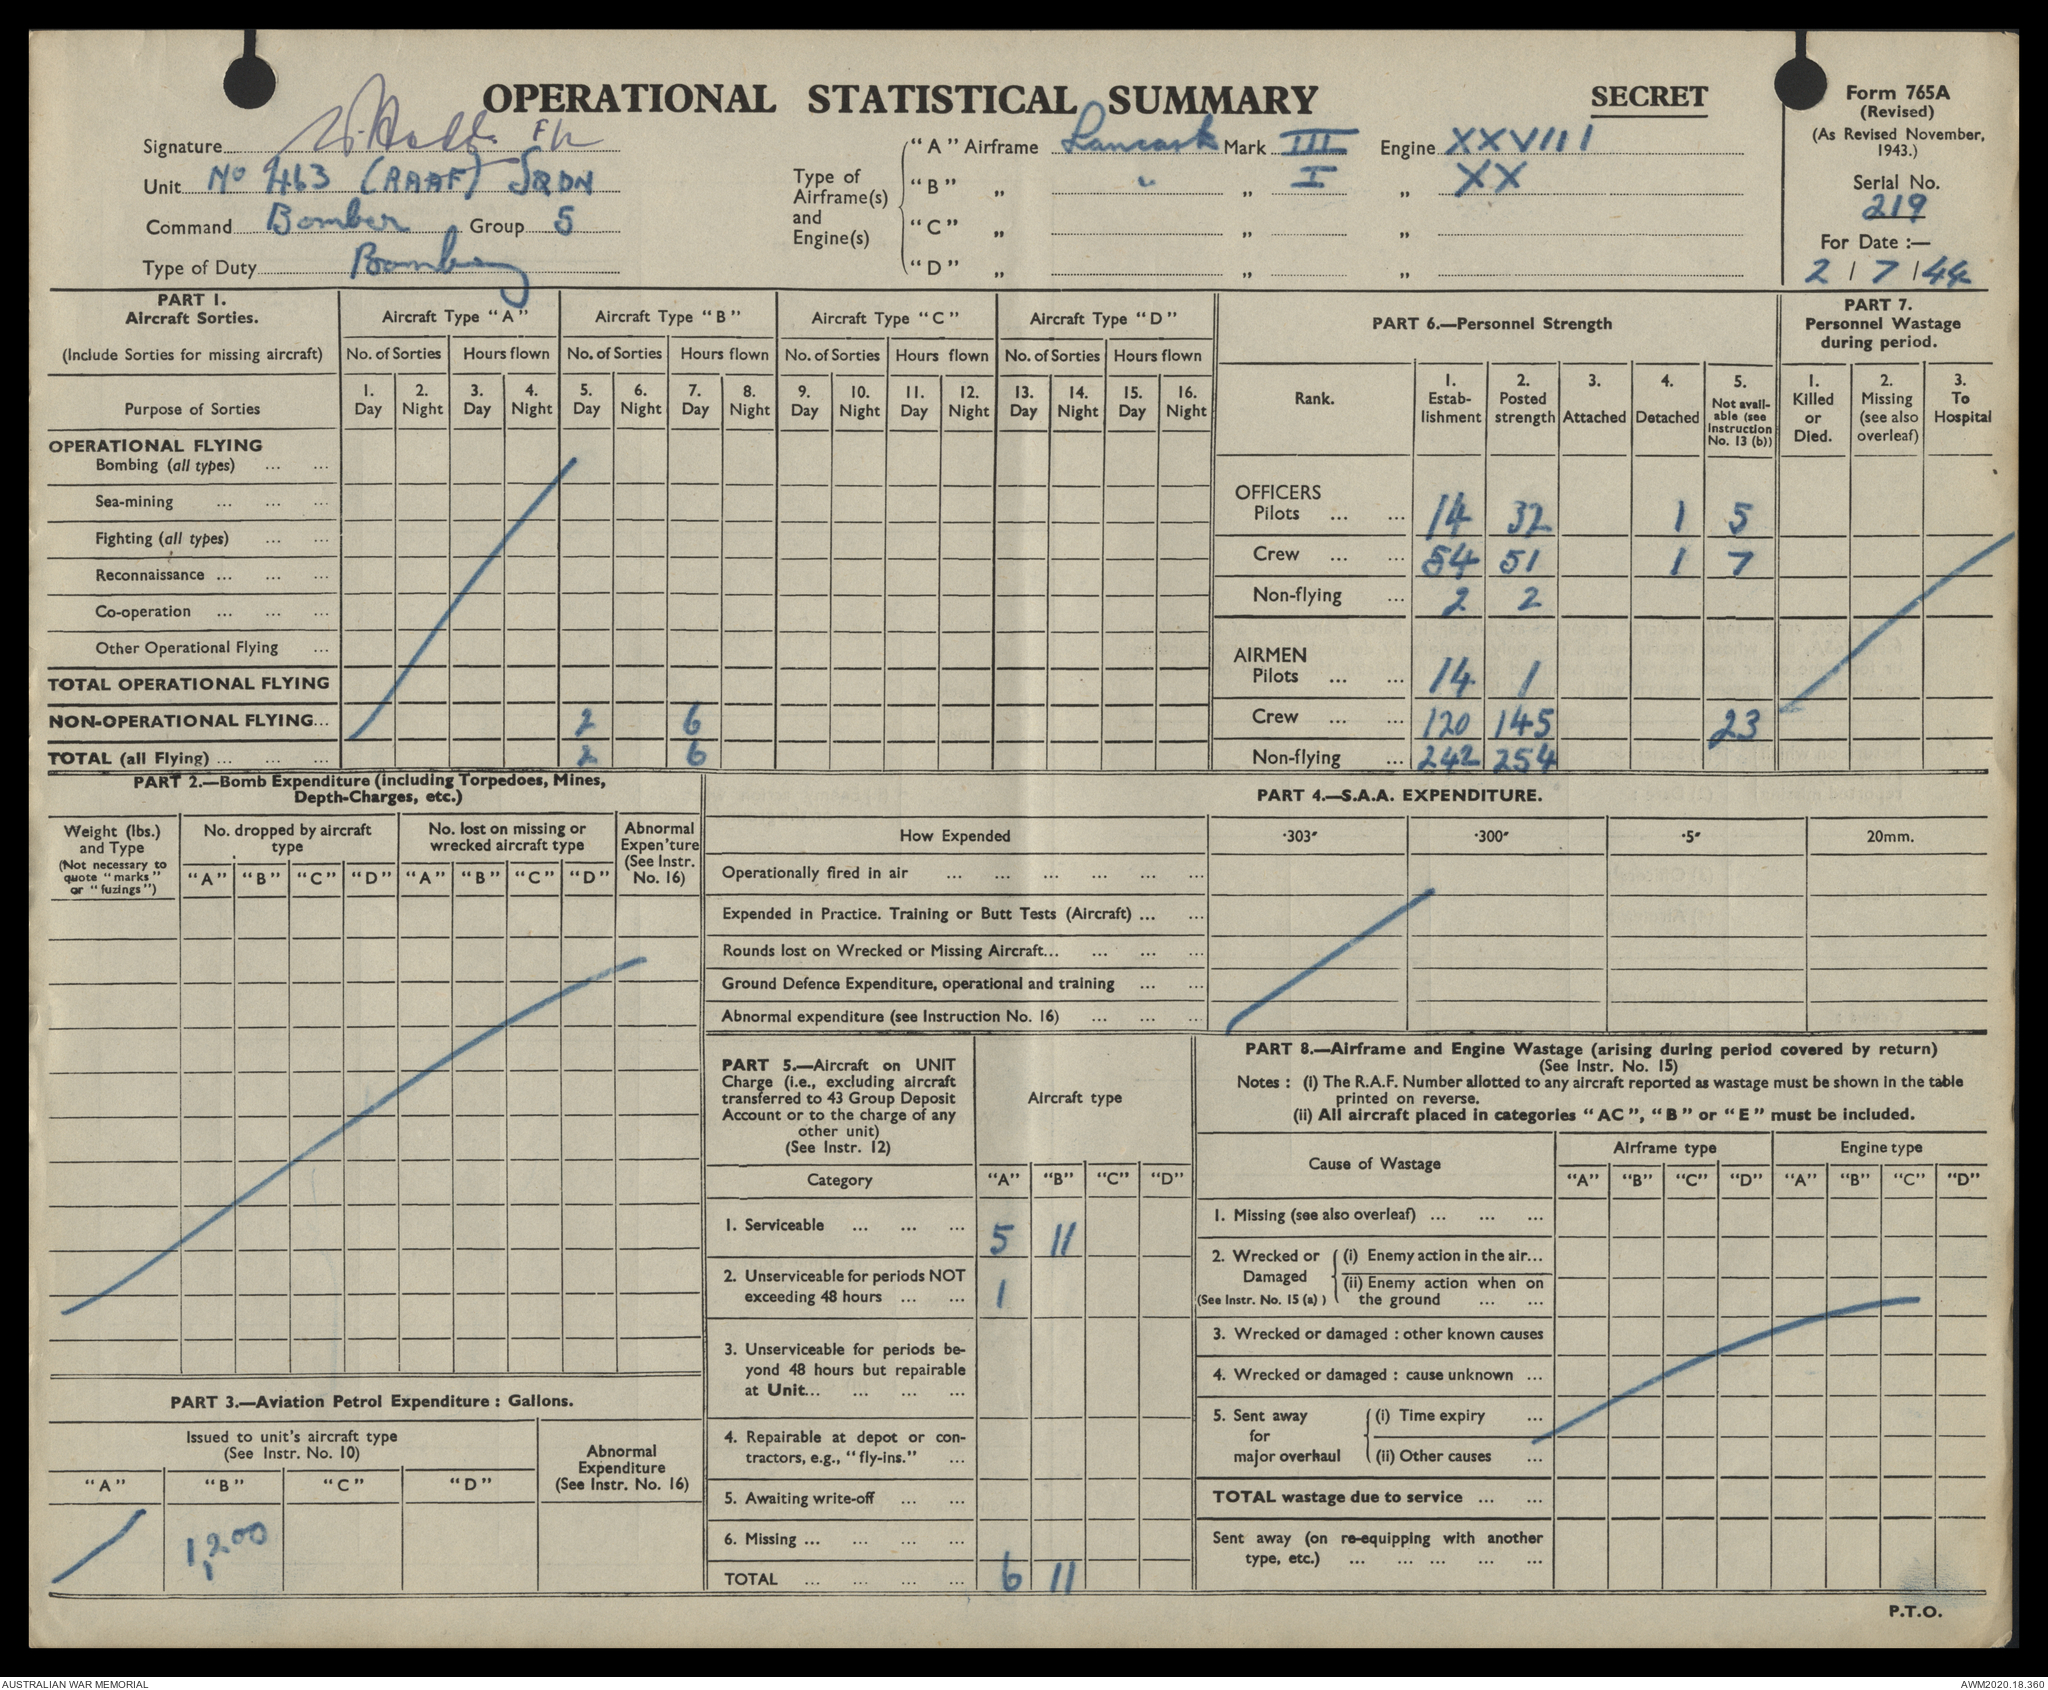 OPERATIONAL STATISTICAL SUMMARY
SECRET
Form 765A
(Revised)
(As Revised November,
1943.)
Serial No.
219
For Date :—
2 / 7 / 44
Signature
Unit No 463 (RAAF) SQDN
Command Bomber Group 5
Type of Duty Bombing
Type of
Airframe(s)
and
Engine(s)
"A" Airframe Lancaster Mark III Engine XXVIII
"B" „ " „ I „ XX
"C" „ „ „
"D" „ „ „
PART 1.
Aircraft Sorties.
(Include Sorties for missing aircraft)
Aircraft Type "A" Aircraft Type "B" Aircraft Type "C" Aircraft Type "D"
No. of Sorties Hours flown No. of Sorties Hours flown No. of Sorties Hours flown No. of Sorties Hours flown
Purpose of Sorties
1. Day 2. Night 3. Day 4. Night 5. Day 6. Night 7. Day 8. Night 9. Day 10. Night 11. Day 12. Night 13. Day 14. Night 15. Day 16. Night
OPERATIONAL FLYING
Bombing (all types) ... ...
Sea-mining ... ... ...
Fighting (all types) ... ...
Reconnaissance ... ... ...
Co-operation ... ... ...
Other Operational Flying ...
TOTAL OPERATIONAL FLYING
NON-OPERATIONAL FLYING... 2 6
TOTAL (all Flying) ... ... ... 2 6
PART 6.—Personnel Strength
Rank.
1. Estab-lishment
2. Posted strength
3. Attached
4. Detached
5. Not avail-able (see Instruction No. 13 (b))
OFFICERS
Pilots ... ... 14 32 1 5
Crew ... ... 54 51 1 7
Non-flying ... 2 2
AIRMEN
Pilots ... ... 14 1
Crew ... ... 120 145 23
Non-flying ... 242 254
PART 7.
Personnel Wastage
during period.
1. Killed or Died.
2. Missing (see also overleaf)
3. To Hospital
PART 2.—Bomb Expenditure (including Torpedoes, Mines,
Depth-Charges, etc.)
Weight (lbs.)
and Type
(Not necessary to
quote "marks"
or "fuzings")
No. dropped by aircraft
type
No. lost on missing or
wrecked aircraft type
Abnormal
Expen'ture
(See Instr.
No. 16)
"A" "B" "C" "D" "A" "B" "C" "D"
PART 3.—Aviation Petrol Expenditure : Gallons.
Issued to unit's aircraft type
(See Instr. No. 10)
Abnormal
Expenditure
(See Instr. No. 16)
"A" "B" "C" "D"
1,200
PART 4.—S.A.A. EXPENDITURE.
How Expended ·303″ ·300″ ·5″ 20mm.
Operationally fired in air ... ... ... ... ... ...
Expended in Practice. Training or Butt Tests (Aircraft) ... ...
Rounds lost on Wrecked or Missing Aircraft... ... ... ...
Ground Defence Expenditure, operational and training ... ...
Abnormal expenditure (see Instruction No. 16) ... ... ...
PART 5.—Aircraft on UNIT
Charge (i.e., excluding aircraft
transferred to 43 Group Deposit
Account or to the charge of any
other unit)
(See Instr. 12)
Aircraft type
Category "A" "B" "C" "D"
1. Serviceable ... ... ... 5 11
2. Unserviceable for periods NOT
exceeding 48 hours ... ... 1
3. Unserviceable for periods be-
yond 48 hours but repairable
at Unit... ... ... ...
4. Repairable at depot or con-
tractors, e.g., "fly-ins." ...
5. Awaiting write-off ... ...
6. Missing ... ... ... ...
TOTAL ... ... ... ... 6 11
PART 8.—Airframe and Engine Wastage (arising during period covered by return)
(See Instr. No. 15)
Notes : (i) The R.A.F. Number allotted to any aircraft reported as wastage must be shown in the table
printed on reverse.
(ii) All aircraft placed in categories "AC", "B" or "E" must be included.
Cause of Wastage
Airframe type Engine type
"A" "B" "C" "D" "A" "B" "C" "D"
1. Missing (see also overleaf) ... ... ...
2. Wrecked or Damaged (See Instr. No. 15 (a) )
(i) Enemy action in the air...
(ii) Enemy action when on
the ground ... ...
3. Wrecked or damaged : other known causes
4. Wrecked or damaged : cause unknown ...
5. Sent away for major overhaul
(i) Time expiry ...
(ii) Other causes ...
TOTAL wastage due to service ... ...
Sent away (on re-equipping with another
type, etc.) ... ... ... ... ...
P.T.O.
AUSTRALIAN WAR MEMORIAL
AWM2020.18.360